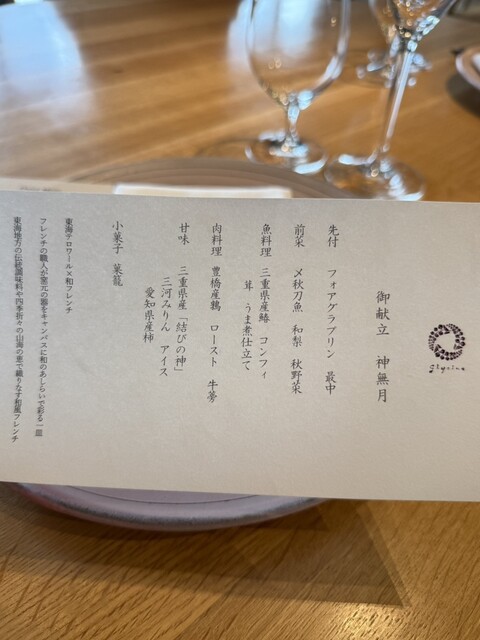 glycine
御献立 神無月
先付 フォアグラブリン 最中
前菜 〆秋刀魚 和梨 秋野菜
魚料理 三重県産鰆 コンフィ
茸 うま煮仕立て
肉料理 豊橋産鶉 ロースト 牛蒡
甘味 三重県産「結びの神」
三河みりん アイス
愛知県産柿
小菓子 菓籠
東海テロワール×和フレンチ
フレンチの職人が窯元の器をキャンバスに和のあしらいで彩る一皿
東海地方の伝統調味料や四季折々の山海の恵で織りなす和風フレンチ